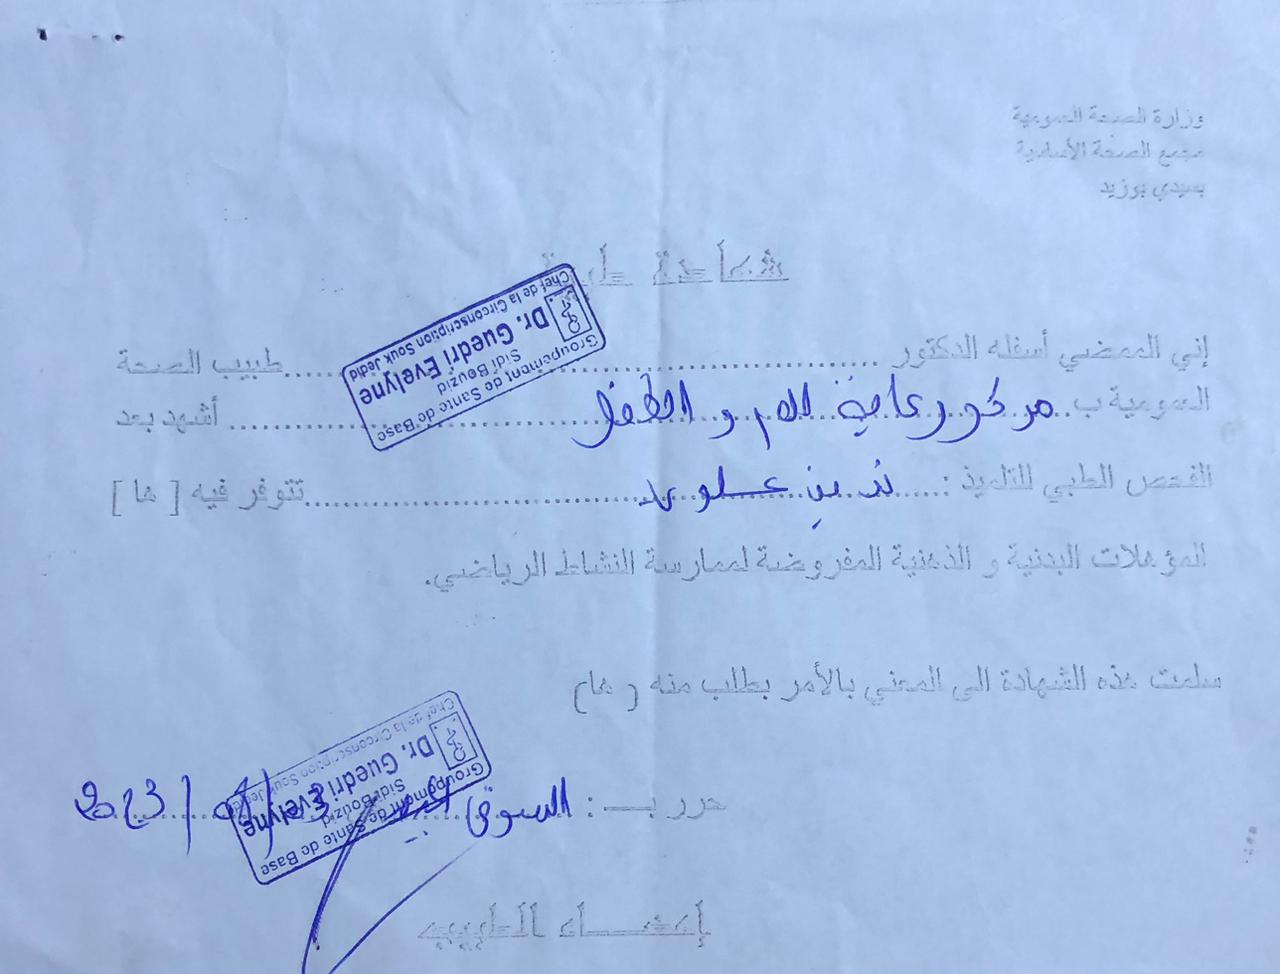 وزارة الصحة العمومية
مجمع الصحة الأساسية
بسيدي بوزيد
شهادة طبية
إني الممضي أسفله الدكتور ............ طبيب الصحة
Groupement de Sante de Base
Sidi Bouzid
Dr. Guedri Evelyne
Chef de la Circonscription Souk Jedid
العمومية ب.. مركز رعاية الام و الطفل ............ أشهد بعد
الفحص الطبي للتلميذ : ............ تتوفر فيه [ ها ]
المؤهلات البدنية و الذهنية المفروضة لممارسة النشاط الرياضي.
سلمت هذه الشهادة الى المعني بالأمر بطلب منه ( ها)
حرر بـــ : السوق
Groupement de Sante de Base
Sidi Bouzid
Dr. Guedri Evelyne
Chef de la Circonscription Souk Jedid
إمضــــاء الطبيب